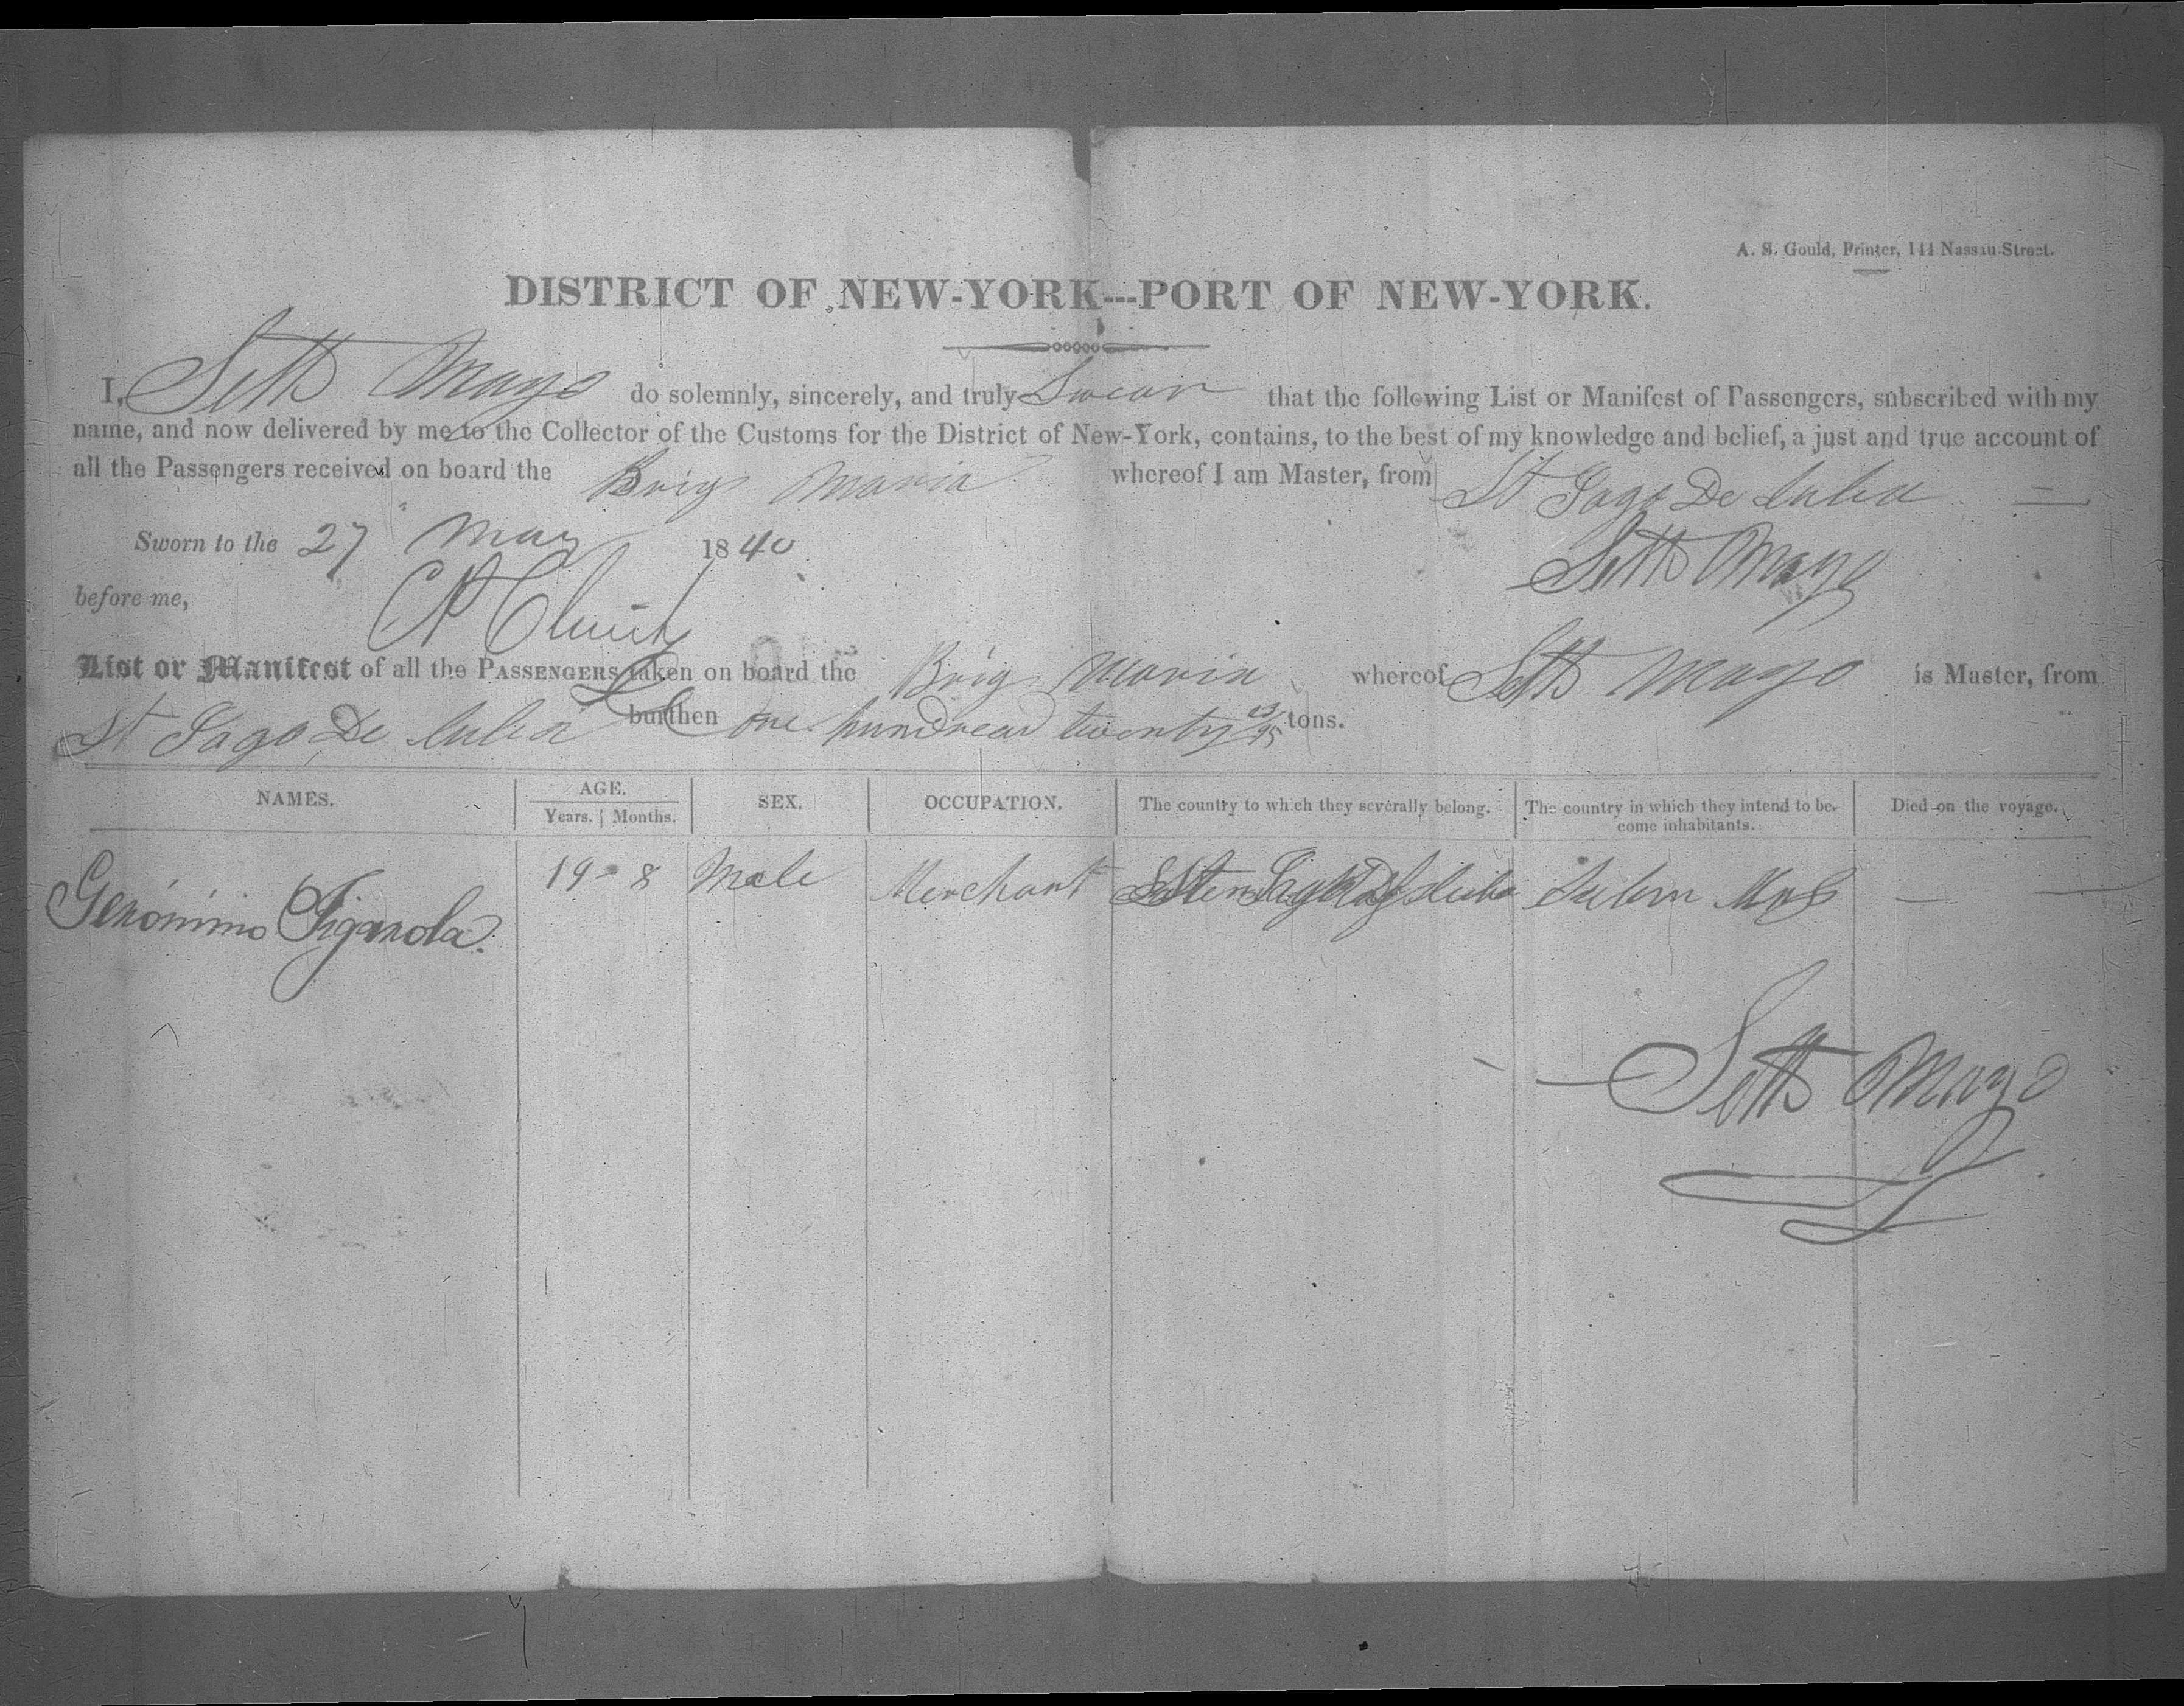 A. S. Gould, Printer, 144 Nassau-Street.
DISTRICT OF NEW-YORK---PORT OF NEW-YORK.
I, Seth Mayo do solemnly, sincerely, and truly Swear that the following List or Manifest of Passengers, subscribed with my
name, and now delivered by me to the Collector of the Customs for the District of New-York, contains, to the best of my knowledge and belief, a just and true account of
all the Passengers received on board the Brig Maria whereof I am Master, from St Jago De Cuba
Sworn to the 27 May 1840
Seth Mayo
before me,
List or Manifest of all the PASSENGERS taken on board the Brig Maria whereof Seth Mayo is Master, from
St Jago De Cuba burthen One hundread twenty 23/95 tons.
NAMES. AGE. SEX. OCCUPATION. The country to which they severally belong. The country in which they intend to be- Died on the voyage.
Years. Months. come inhabitants.
Gerónimo Figarola. 19 - 8 Male Merchant Cuba Salem Mas —
Seth Mayo